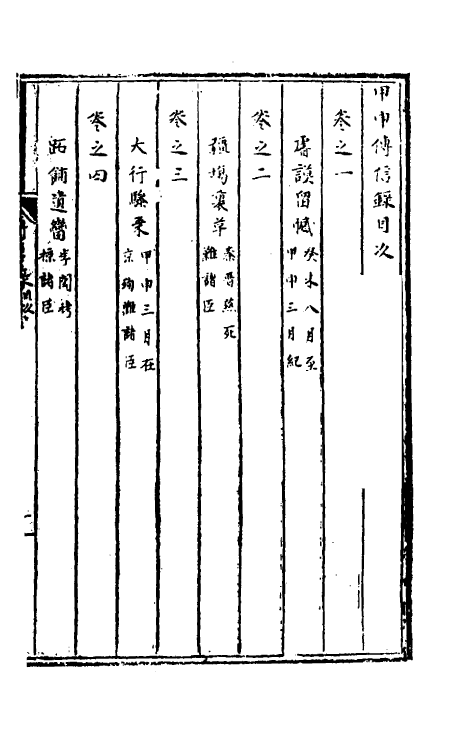 甲申傳信錄目次
卷之一
睿謨留憾 癸未八月至甲申三月紀
卷之二
疆場裹革 秦晉燕死難諸臣
卷之三
大行驂乘 甲申三月在京殉難諸臣
卷之四
跖餔遺臠 李闖拷掠諸臣